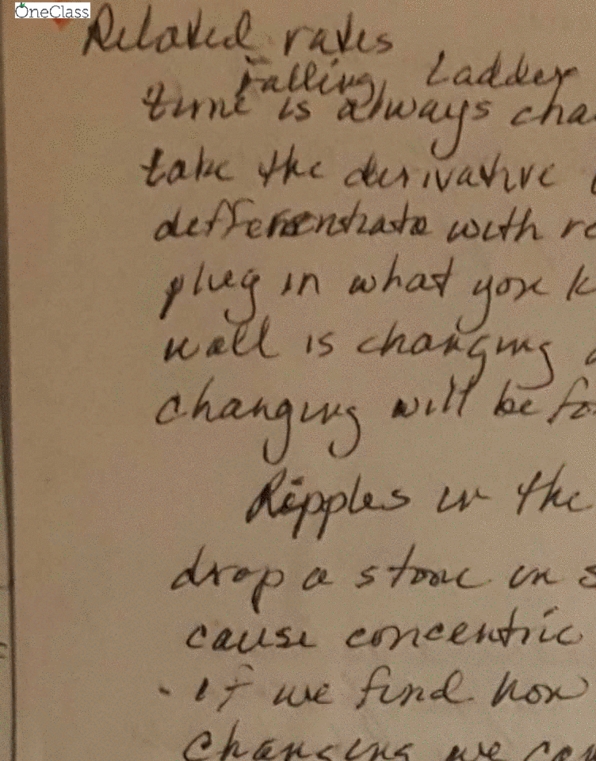 OneClass
Related rates
Falling Ladder
time is always cha
take the derivative
defferentiate with re
plug in what you k
wall is changing a
changing will be fo
Ripples in the
drop a stone in s
cause concentric
. if we find how
changing we can